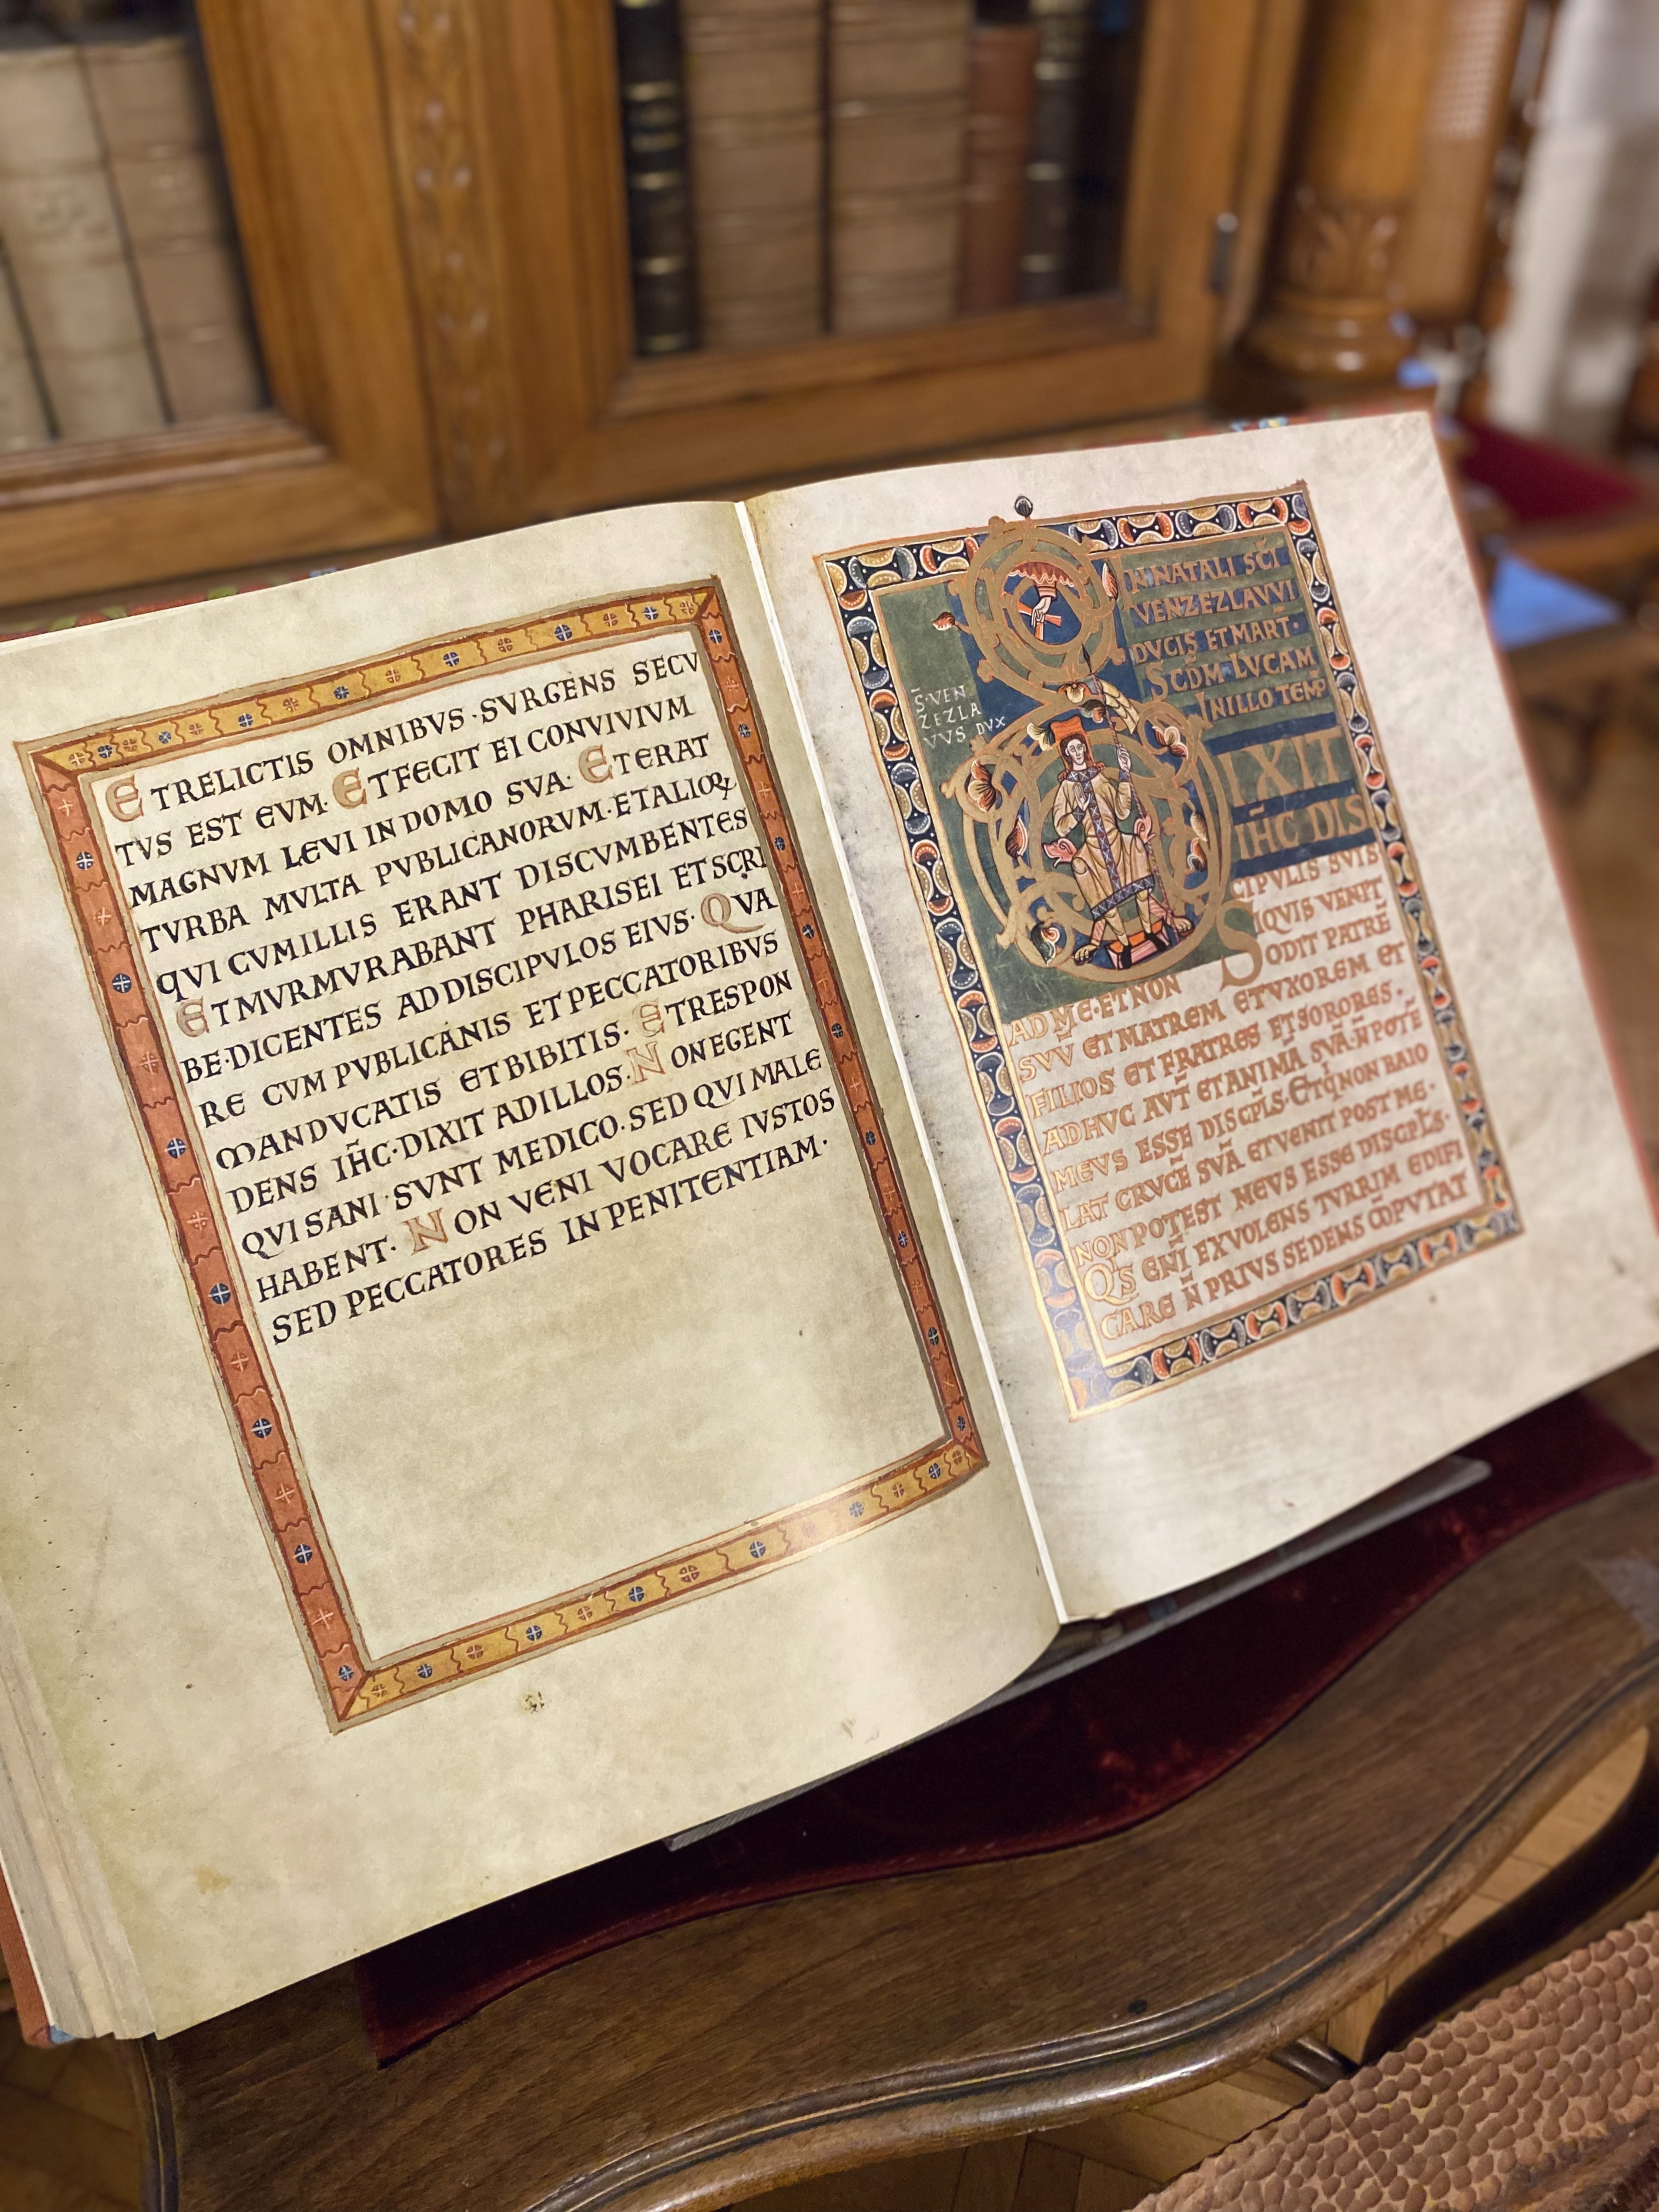 ET RELICTIS OMNIBVS · SVRGENS SECV
TVS EST EVM · ET FECIT EI CONVIVIVM
MAGNVM LEVI IN DOMO SVA · ET ERAT
TVRBA MVLTA PVBLICANORVM · ET ALIOꝜ
QVI CVM ILLIS ERANT DISCVMBENTES
ET MVRMVRABANT PHARISEI ET SCRI
BE · DICENTES AD DISCIPVLOS EIVS · QVA
RE CVM PVBLICANIS ET PECCATORIBVS
MANDVCATIS ET BIBITIS · ET RESPON
DENS IH̄C · DIXIT AD ILLOS · NON EGENT
QVI SANI SVNT MEDICO · SED QVI MALE
HABENT · NON VENI VOCARE IVSTOS
SED PECCATORES IN PENITENTIAM ·
IN NATALI SC̄I
VENZEZLAVVI
DVCIS ET MART ·
SCD̄M LVCAM
IN ILLO TEMP̄
S̄ · VEN
ZEZLA
VVS DVX
DIXIT
IH̄C DIS
CIPVLIS SVIS
SIQVIS VENIT
AD ME · ET NON ODIT PATRĒ
SVV̄ ET MATREM ET VXOREM ET
FILIOS ET FRATRES ET SORORES ·
ADHVC AVT̄ ET ANIMĀ SVĀ · N̄ POTĒ
MEVS ESSE DISCPL̄S · ET Q̄ NON BAIO
LAT CRVCĒ SVĀ ET VENIT POST ME ·
NON POTEST MEVS ESSE DISCPL̄S ·
Q̄S ENĪ EX VOLENS TVRRIM EDIFI
CARE N̄ PRIVS SEDENS CŌPVTAT